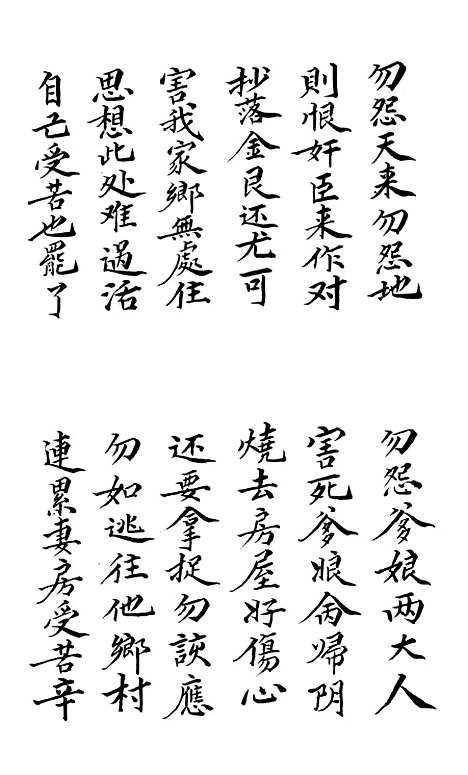 勿怨天来勿怨地
勿怨爹娘两大人
則恨奸臣来作对
害死爹娘命帰阴
抄落金艮还尤可
燒去房屋好傷心
害我家鄉無處住
还要拿捉勿該應
思想此处难過活
勿如逃往他鄉村
自己受苦也罷了
連累妻房受苦辛